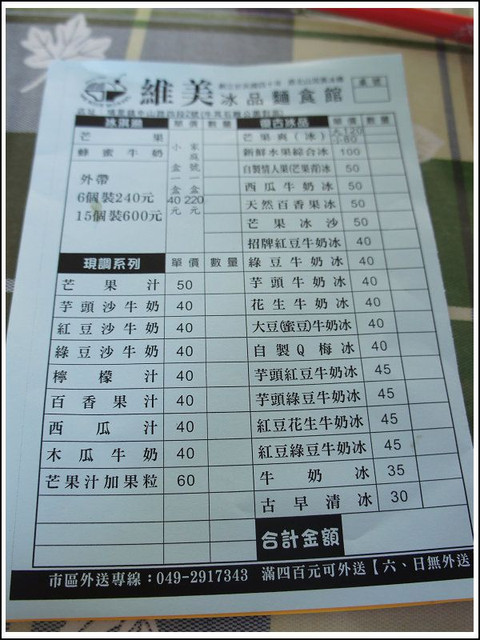 維美 冰品麵食館
桌號
單價 數量
單價 數量
芒果
蜂蜜牛奶
小盒一盒40元
家庭號一盒220元
外帶
6個裝240元
15個裝600元
現調系列 單價 數量
芒果汁 50
芋頭沙牛奶 40
紅豆沙牛奶 40
綠豆沙牛奶 40
檸檬汁 40
百香果汁 40
西瓜汁 40
木瓜牛奶 40
芒果汁加果粒 60
芒果爽(冰) 大120 小80
新鮮水果綜合冰 100
自製情人果(芒果青)冰 50
西瓜牛奶冰 50
天然百香果冰 50
芒果冰沙 50
招牌紅豆牛奶冰 40
綠豆牛奶冰 40
芋頭牛奶冰 40
花生牛奶冰 40
大豆(蜜豆)牛奶冰 40
自製Q梅冰 40
芋頭紅豆牛奶冰 45
芋頭綠豆牛奶冰 45
紅豆花生牛奶冰 45
紅豆綠豆牛奶冰 45
牛奶冰 35
古早清冰 30
合計金額
市區外送專線：049-2917343 滿四百元可外送【六、日無外送